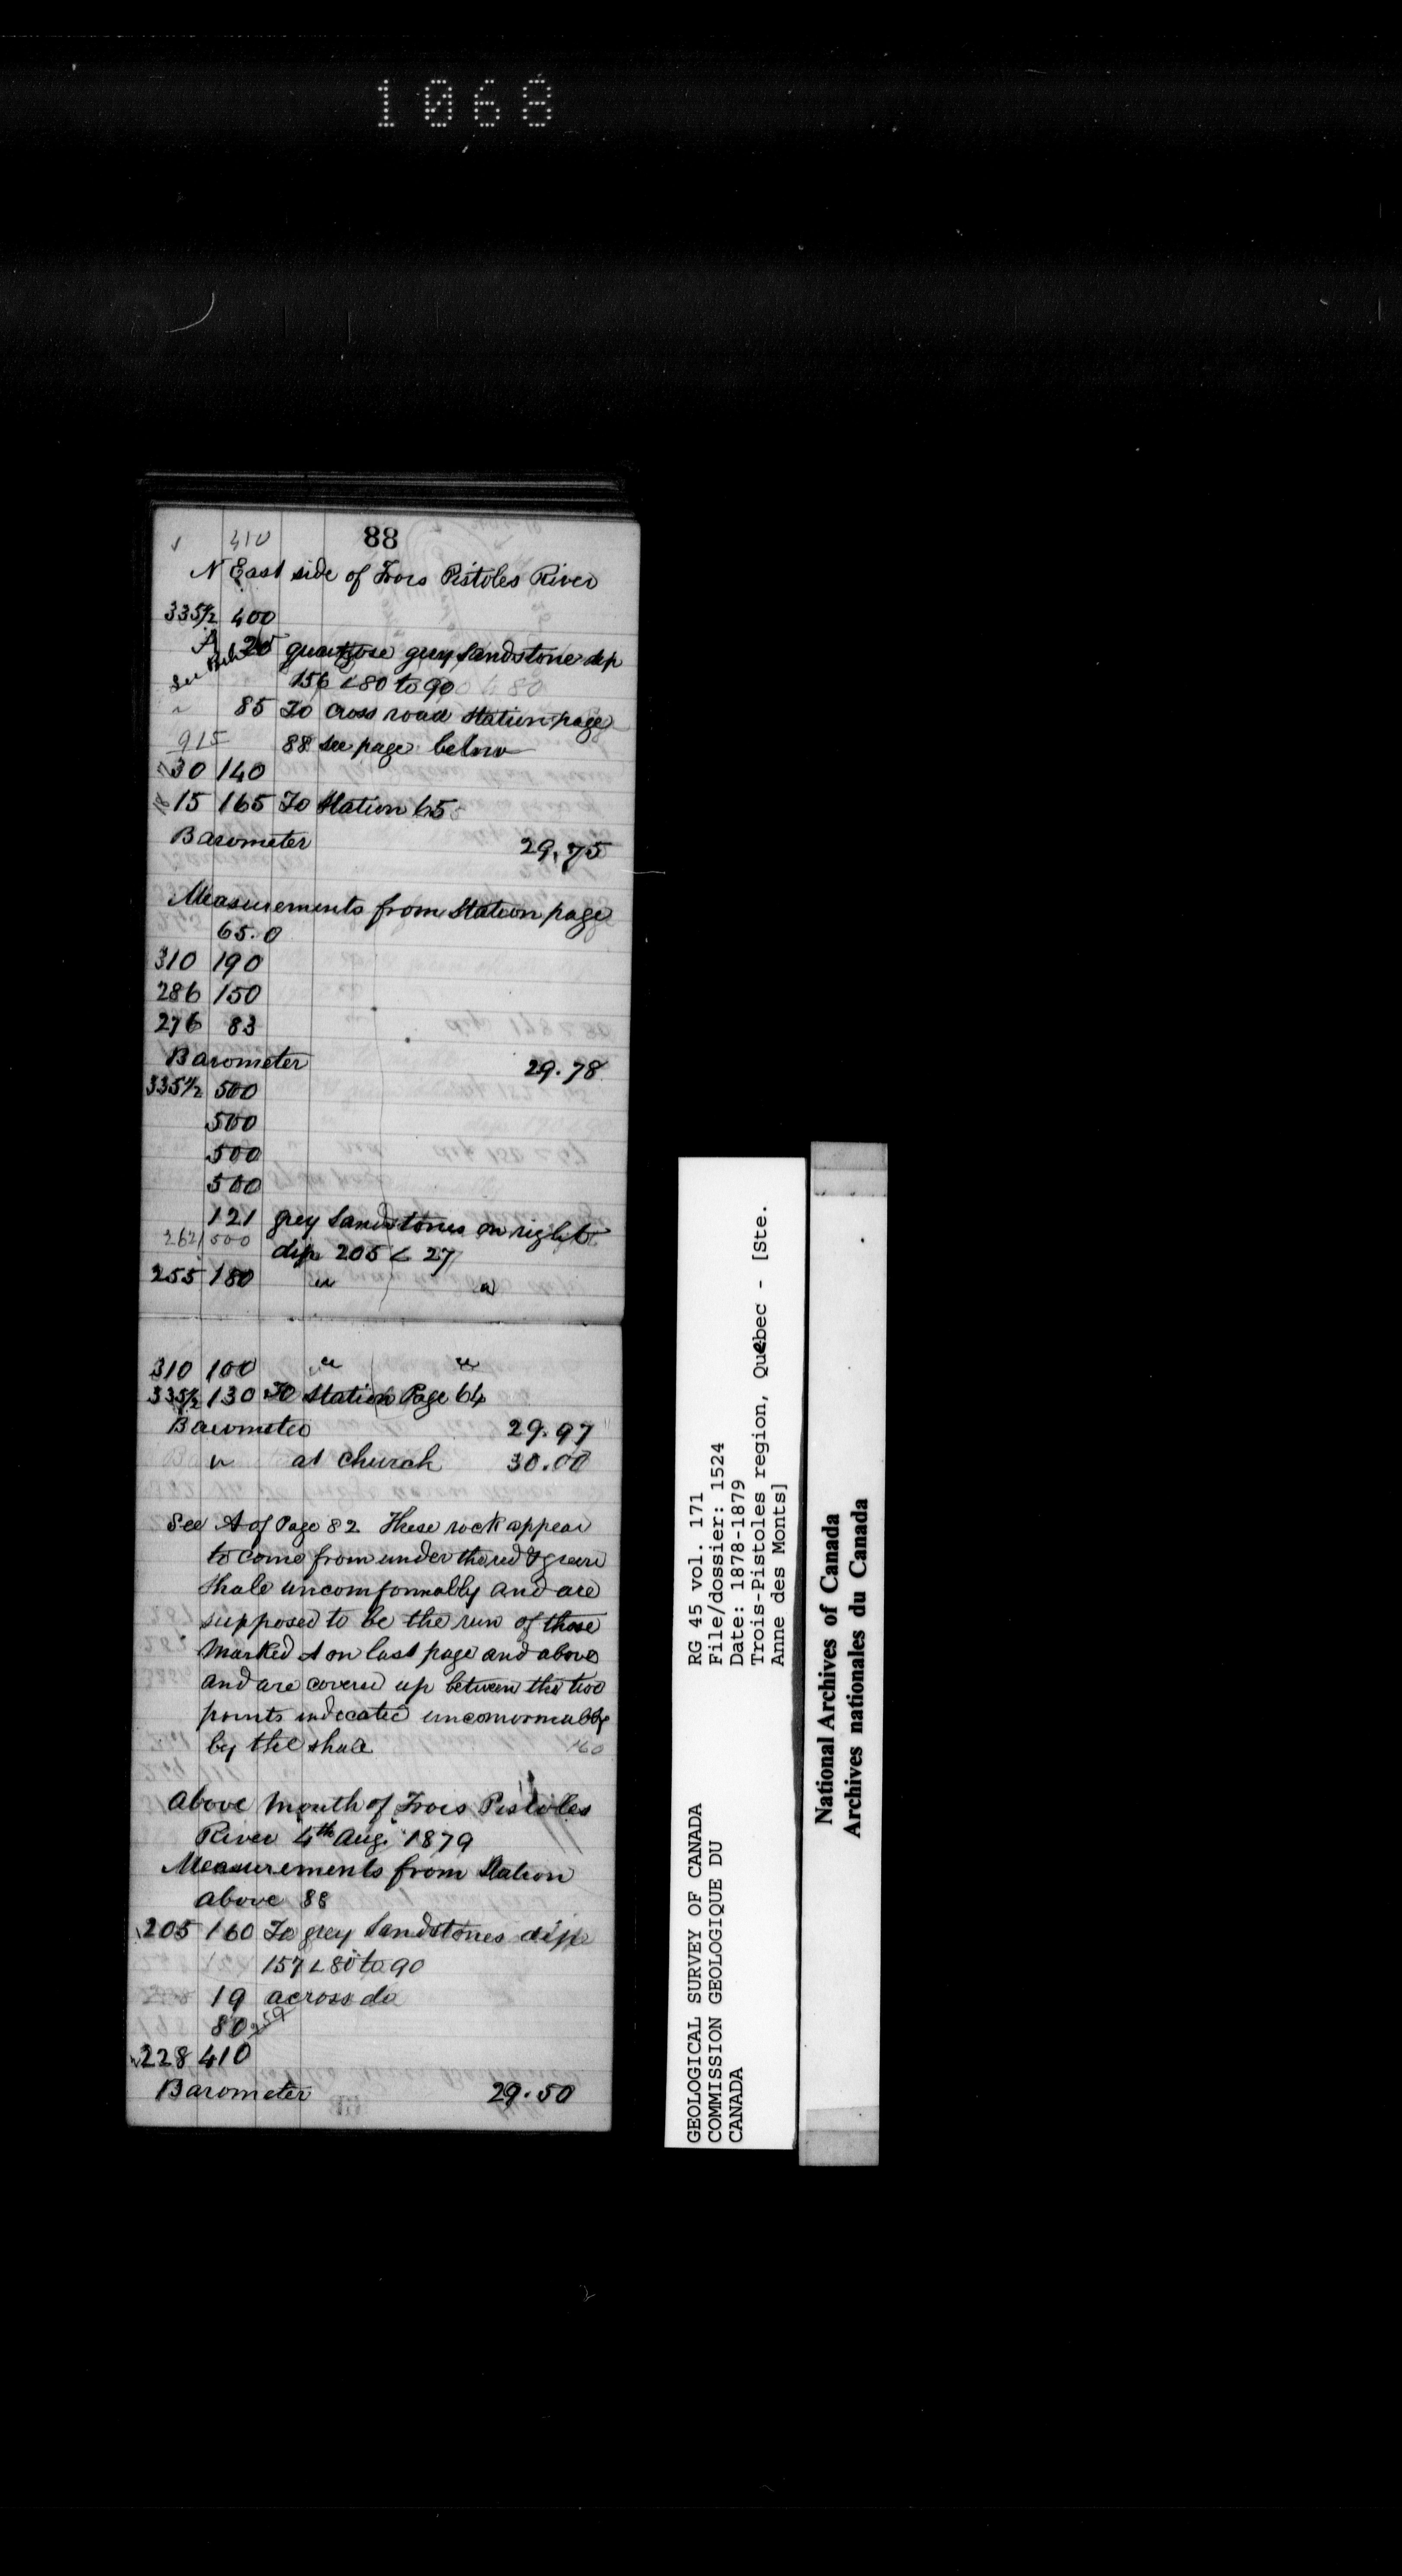 1068
310 88
N East side of Trois Pistoles River
335 1/2 400
A 20 quartzose grey Sandstone dip
See Below
156 < 80 to 90
" 85 To Cross road Station page
915 88 see page below
30 140
15 165 To Station 65
Barometer 29.75
Measurements from Station page
65.0
310 190
286 150
276 83
Barometer 29.78
335 1/2 500
500
500
500
121 grey Sandstones on right
262 500
dip 205 < 27
255 180 " "
310 100 " "
335 1/2 130 To Station Page 64
Barometer 29.97
" at Church 30.00
See A of Page 82 These rock appear
to come from under the red & green
Shale uncomformably and are
supposed to be the run of those
Marked A on last page and above
and are covered up between the two
points indicated uncomormably
by the shale
160
above Mouth of Trois Pistoles
River 4th Aug. 1879
Measurements from Station
above 88
205 160 To grey Sandstones dip
157 < 80 to 90
19 across do
80 259
228 410
Barometer 29.50
GEOLOGICAL SURVEY OF CANADA
COMMISSION GEOLOGIQUE DU
CANADA
RG 45 vol. 171
File/dossier: 1524
Date: 1878-1879
Trois-Pistoles region, Quebec - [Ste.
Anne des Monts]
National Archives of Canada
Archives nationales du Canada